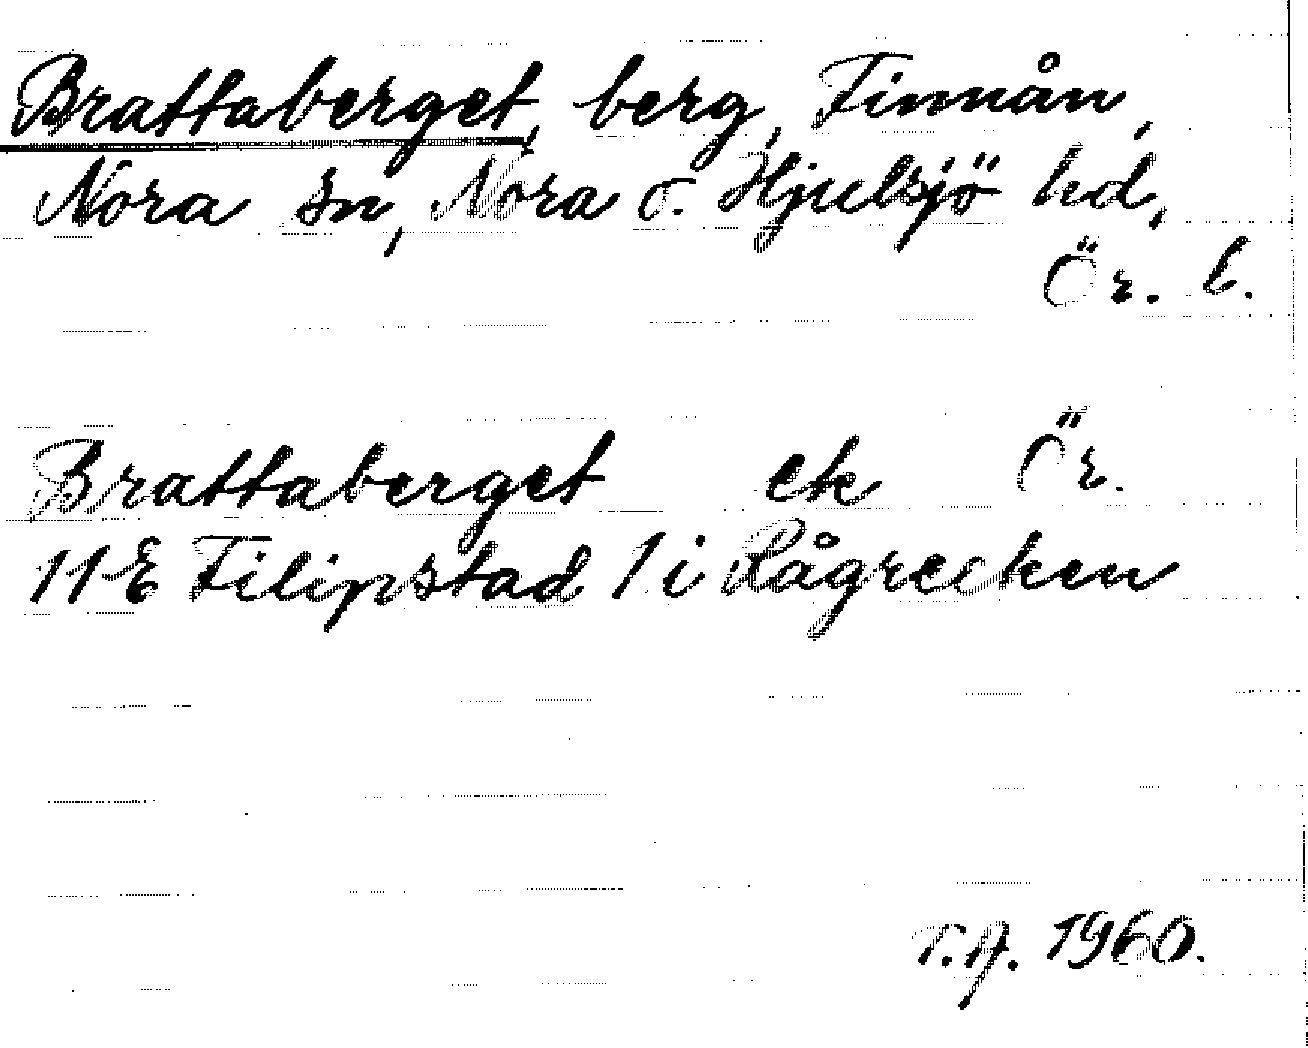 Brattaberget, berg, Finnån,
Nora sn, Nora o. Hjulsjö hd,
Ör. l.
Brattaberget ek Ör.
11E Filipstad 1 i Rågrecken
T.A. 1960.